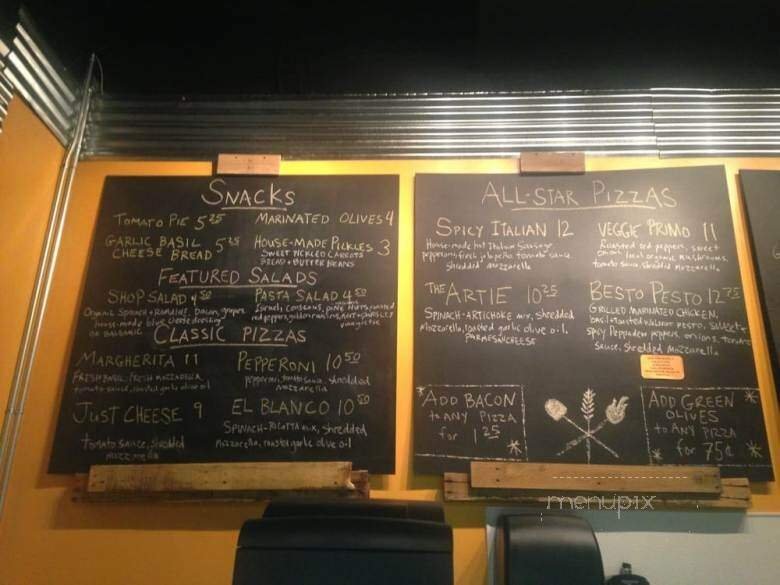 SNACKS
TOMATO PIE 5 25
MARINATED OLIVES 4
GARLIC BASIL
CHEESE BREAD 5 25
HOUSE-MADE PICKLES 3
SWEET PICKLED CARROTS
BREAD + BUTTER BEANS
FEATURED SALADS
SHOP SALAD 4 50
Organic Spinach + Romaine, Bacon, grapes
house-made blue cheese dressing
OR BALSAMIC
PASTA SALAD 4 50
Israeli couscous, pine nuts, roasted
red peppers, golden raisins, mint + parsley
vinaigrette
CLASSIC PIZZAS
MARGHERITA 11
FRESH BASIL, FRESH MOZZARELLA,
tomato sauce, roasted garlic olive oil
PEPPERONI 10 50
pepperoni, tomato sauce, shredded
mozzarella
JUST CHEESE 9
tomato sauce, shredded
mozzarella
EL BLANCO 10 50
SPINACH-RICOTTA mix, shredded
Mozzarella, roasted garlic olive oil
ALL-STAR PIZZAS
SPICY ITALIAN 12
House-made hot Italian Sausage,
pepperoni, fresh jalapeño, tomato sauce,
shredded mozzarella
VEGGIE PRIMO 11
Roasted red peppers, sweet
onion, local organic mushrooms,
tomato sauce, shredded mozzarella
THE ARTIE 10 25
SPINACH-ARTICHOKE mix, shredded
Mozzarella, roasted garlic olive oil,
PARMESAN CHEESE
BESTO PESTO 12 75
GRILLED MARINATED CHICKEN,
basil + toasted walnut pesto, sweet +
spicy Peppadew peppers, onions, tomato
sauce, shredded mozzarella
ADD BACON
to ANY PIZZA
for 1 25
ADD GREEN
OLIVES
to ANY PIZZA
for 75¢
menupix